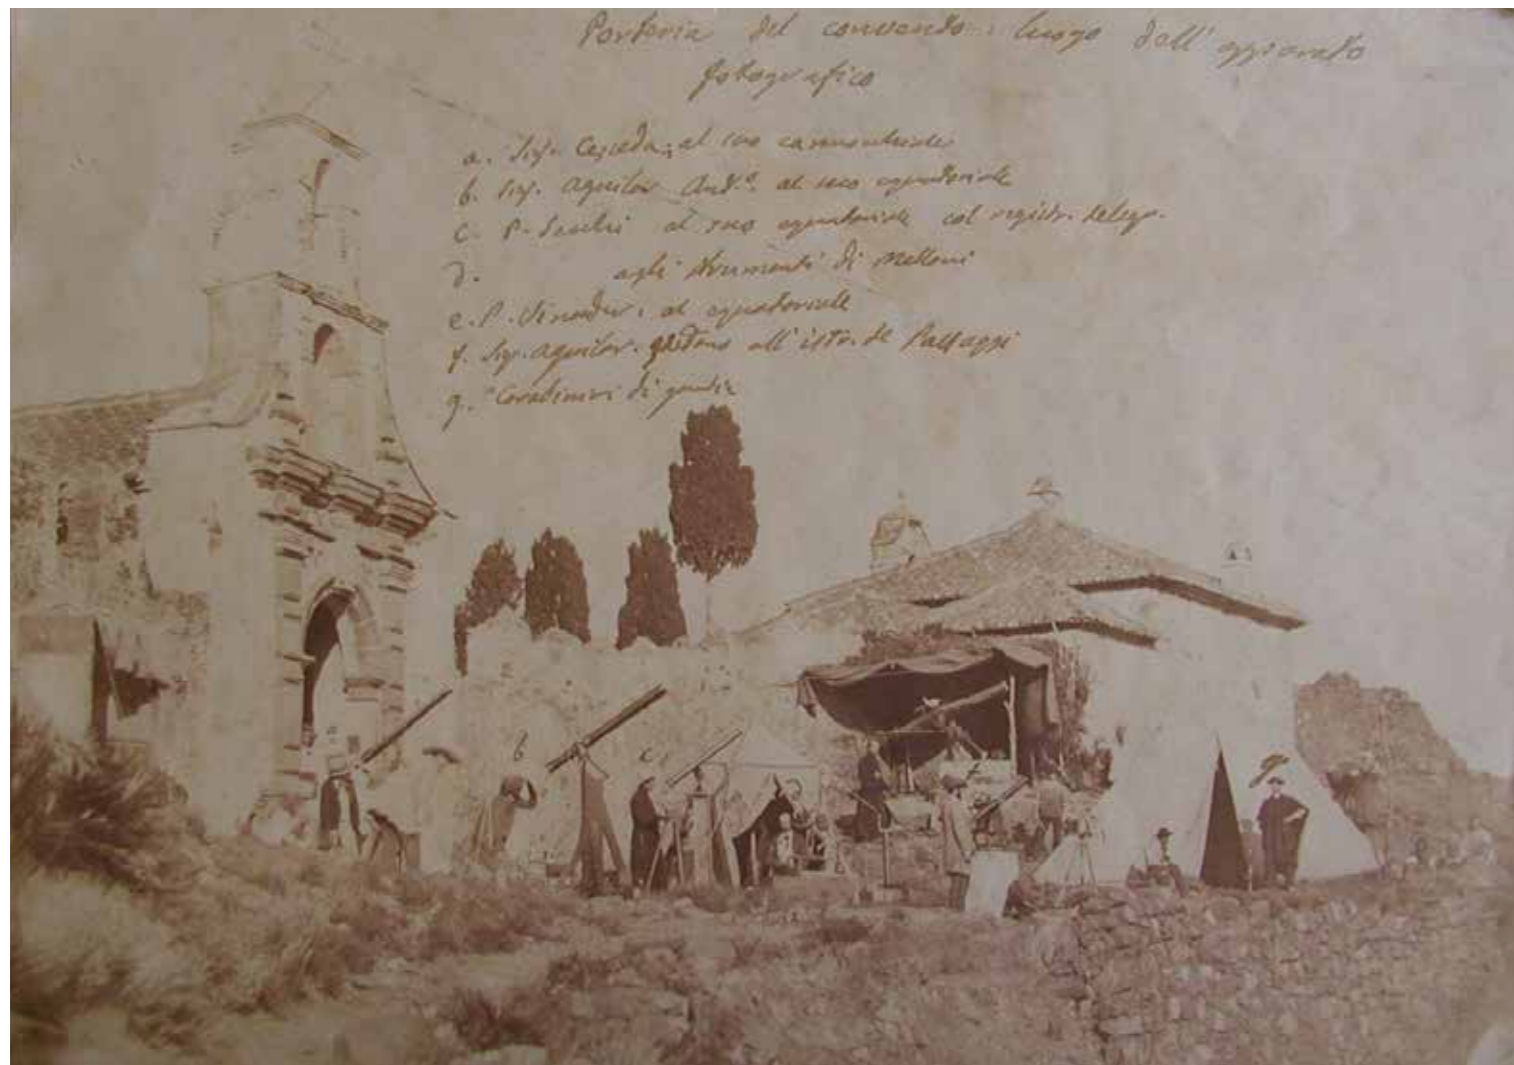 Porteria del convento: luogo dell' apparato
fotografico
a. Sig. Cepeda; al suo
b. Sig. Aguilar Ant.º. al suo equatoriale
c. P. Secchi al suo equatoriale col registr. telegr.
d. agli strumenti di Melloni
e. P. Vinader. al equatoriale
f. Sig. Aguilar. all' istr. de Passaggi
g. Carabinieri di guardia
b
c
f
g